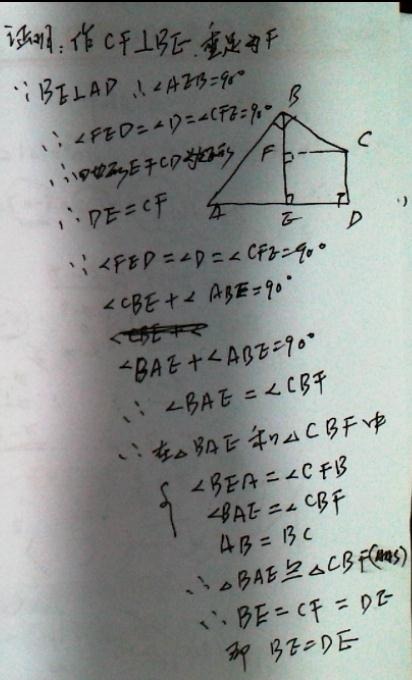 证明: 作CF⊥BE, 垂足为F
∵BE⊥AD ∴∠AEB=90°
∴∠FED=∠D=∠CFE=90°
∴四边形EFCD为矩形
∴DE=CF
B
F
C
A
E
D
∵∠FED=∠D=∠CFE=90°
∠CBE+∠ABE=90°
∠BAE+∠ABE=90°
∴∠BAE=∠CBF
∴在△BAE和△CBF中
{∠BEA=∠CFB
∠BAE=∠CBF
AB=BC
∴△BAE≌△CBF(AAS)
∴BE=CF=DE
即 BE=DE